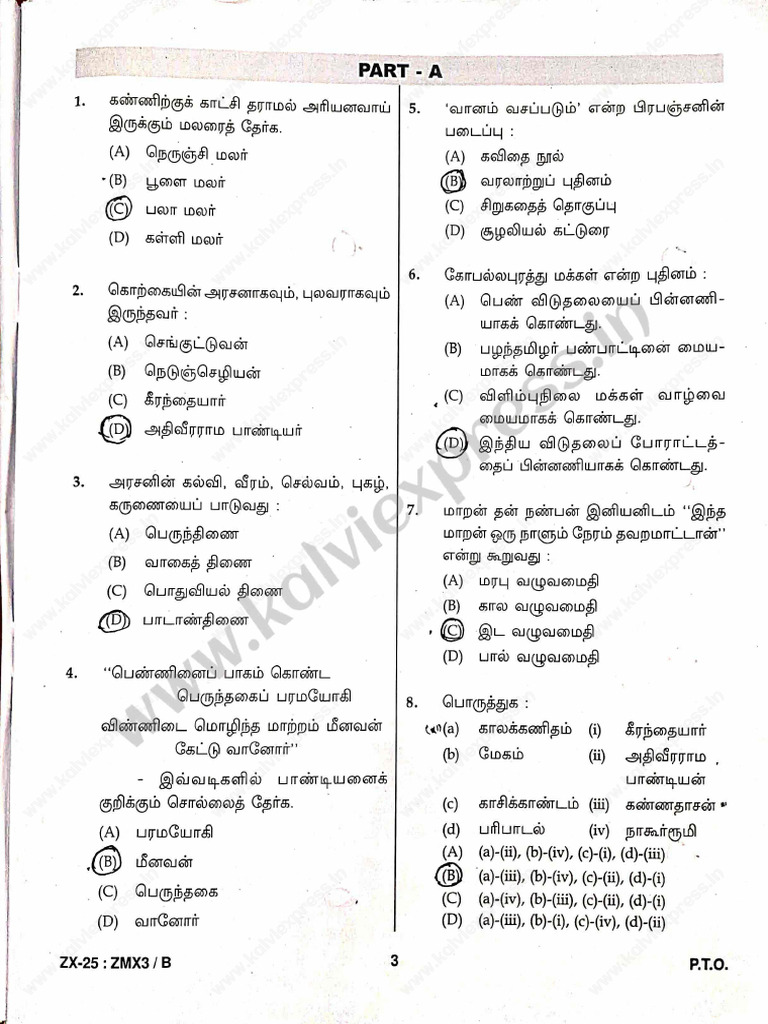 PART - A
1. கண்ணிற்குக் காட்சி தராமல் அரியனவாய்
இருக்கும் மலரைத் தேர்க.
(A) நெருஞ்சி மலர்
(B) பூளை மலர்
(C) பலா மலர்
(D) கள்ளி மலர்
2. கொற்கையின் அரசனாகவும், புலவராகவும்
இருந்தவர் :
(A) செங்குட்டுவன்
(B) நெடுஞ்செழியன்
(C) கீரந்தையார்
(D) அதிவீரராம பாண்டியர்
3. அரசனின் கல்வி, வீரம், செல்வம், புகழ்,
கருணையைப் பாடுவது :
(A) பெருந்திணை
(B) வாகைத் திணை
(C) பொதுவியல் திணை
(D) பாடாண்திணை
4. ‘‘பெண்ணினைப் பாகம் கொண்ட
பெருந்தகைப் பரமயோகி
விண்ணிடை மொழிந்த மாற்றம் மீனவன்
கேட்டு வானோர்’’
- இவ்வடிகளில் பாண்டியனைக்
குறிக்கும் சொல்லைத் தேர்க.
(A) பரமயோகி
(B) மீனவன்
(C) பெருந்தகை
(D) வானோர்
5. ‘வானம் வசப்படும்’ என்ற பிரபஞ்சனின்
படைப்பு :
(A) கவிதை நூல்
(B) வரலாற்றுப் புதினம்
(C) சிறுகதைத் தொகுப்பு
(D) சூழலியல் கட்டுரை
6. கோபல்லபுரத்து மக்கள் என்ற புதினம் :
(A) பெண் விடுதலையைப் பின்னணி-
யாகக் கொண்டது.
(B) பழந்தமிழர் பண்பாட்டினை மைய-
மாகக் கொண்டது.
(C) விளிம்புநிலை மக்கள் வாழ்வை
மையமாகக் கொண்டது.
(D) இந்திய விடுதலைப் போராட்டத்-
தைப் பின்னணியாகக் கொண்டது.
7. மாறன் தன் நண்பன் இனியனிடம் ‘‘இந்த
மாறன் ஒரு நாளும் நேரம் தவறமாட்டான்’’
என்று கூறுவது :
(A) மரபு வழுவமைதி
(B) கால வழுவமைதி
(C) இட வழுவமைதி
(D) பால் வழுவமைதி
8. பொருத்துக :
(a) காலக்கணிதம் (i) கீரந்தையார்
(b) மேகம் (ii) அதிவீரராம
பாண்டியன்
(c) காசிக்காண்டம் (iii) கண்ணதாசன்
(d) பரிபாடல் (iv) நாகூர்ரூமி
(A) (a)-(ii), (b)-(iv), (c)-(i), (d)-(iii)
(B) (a)-(iii), (b)-(iv), (c)-(ii), (d)-(i)
(C) (a)-(iv), (b)-(iii), (c)-(ii), (d)-(i)
(D) (a)-(iii), (b)-(i), (c)-(iv), (d)-(ii)
www.kalviexpress.in
ZX-25 : ZMX3 / B 3 P.T.O.